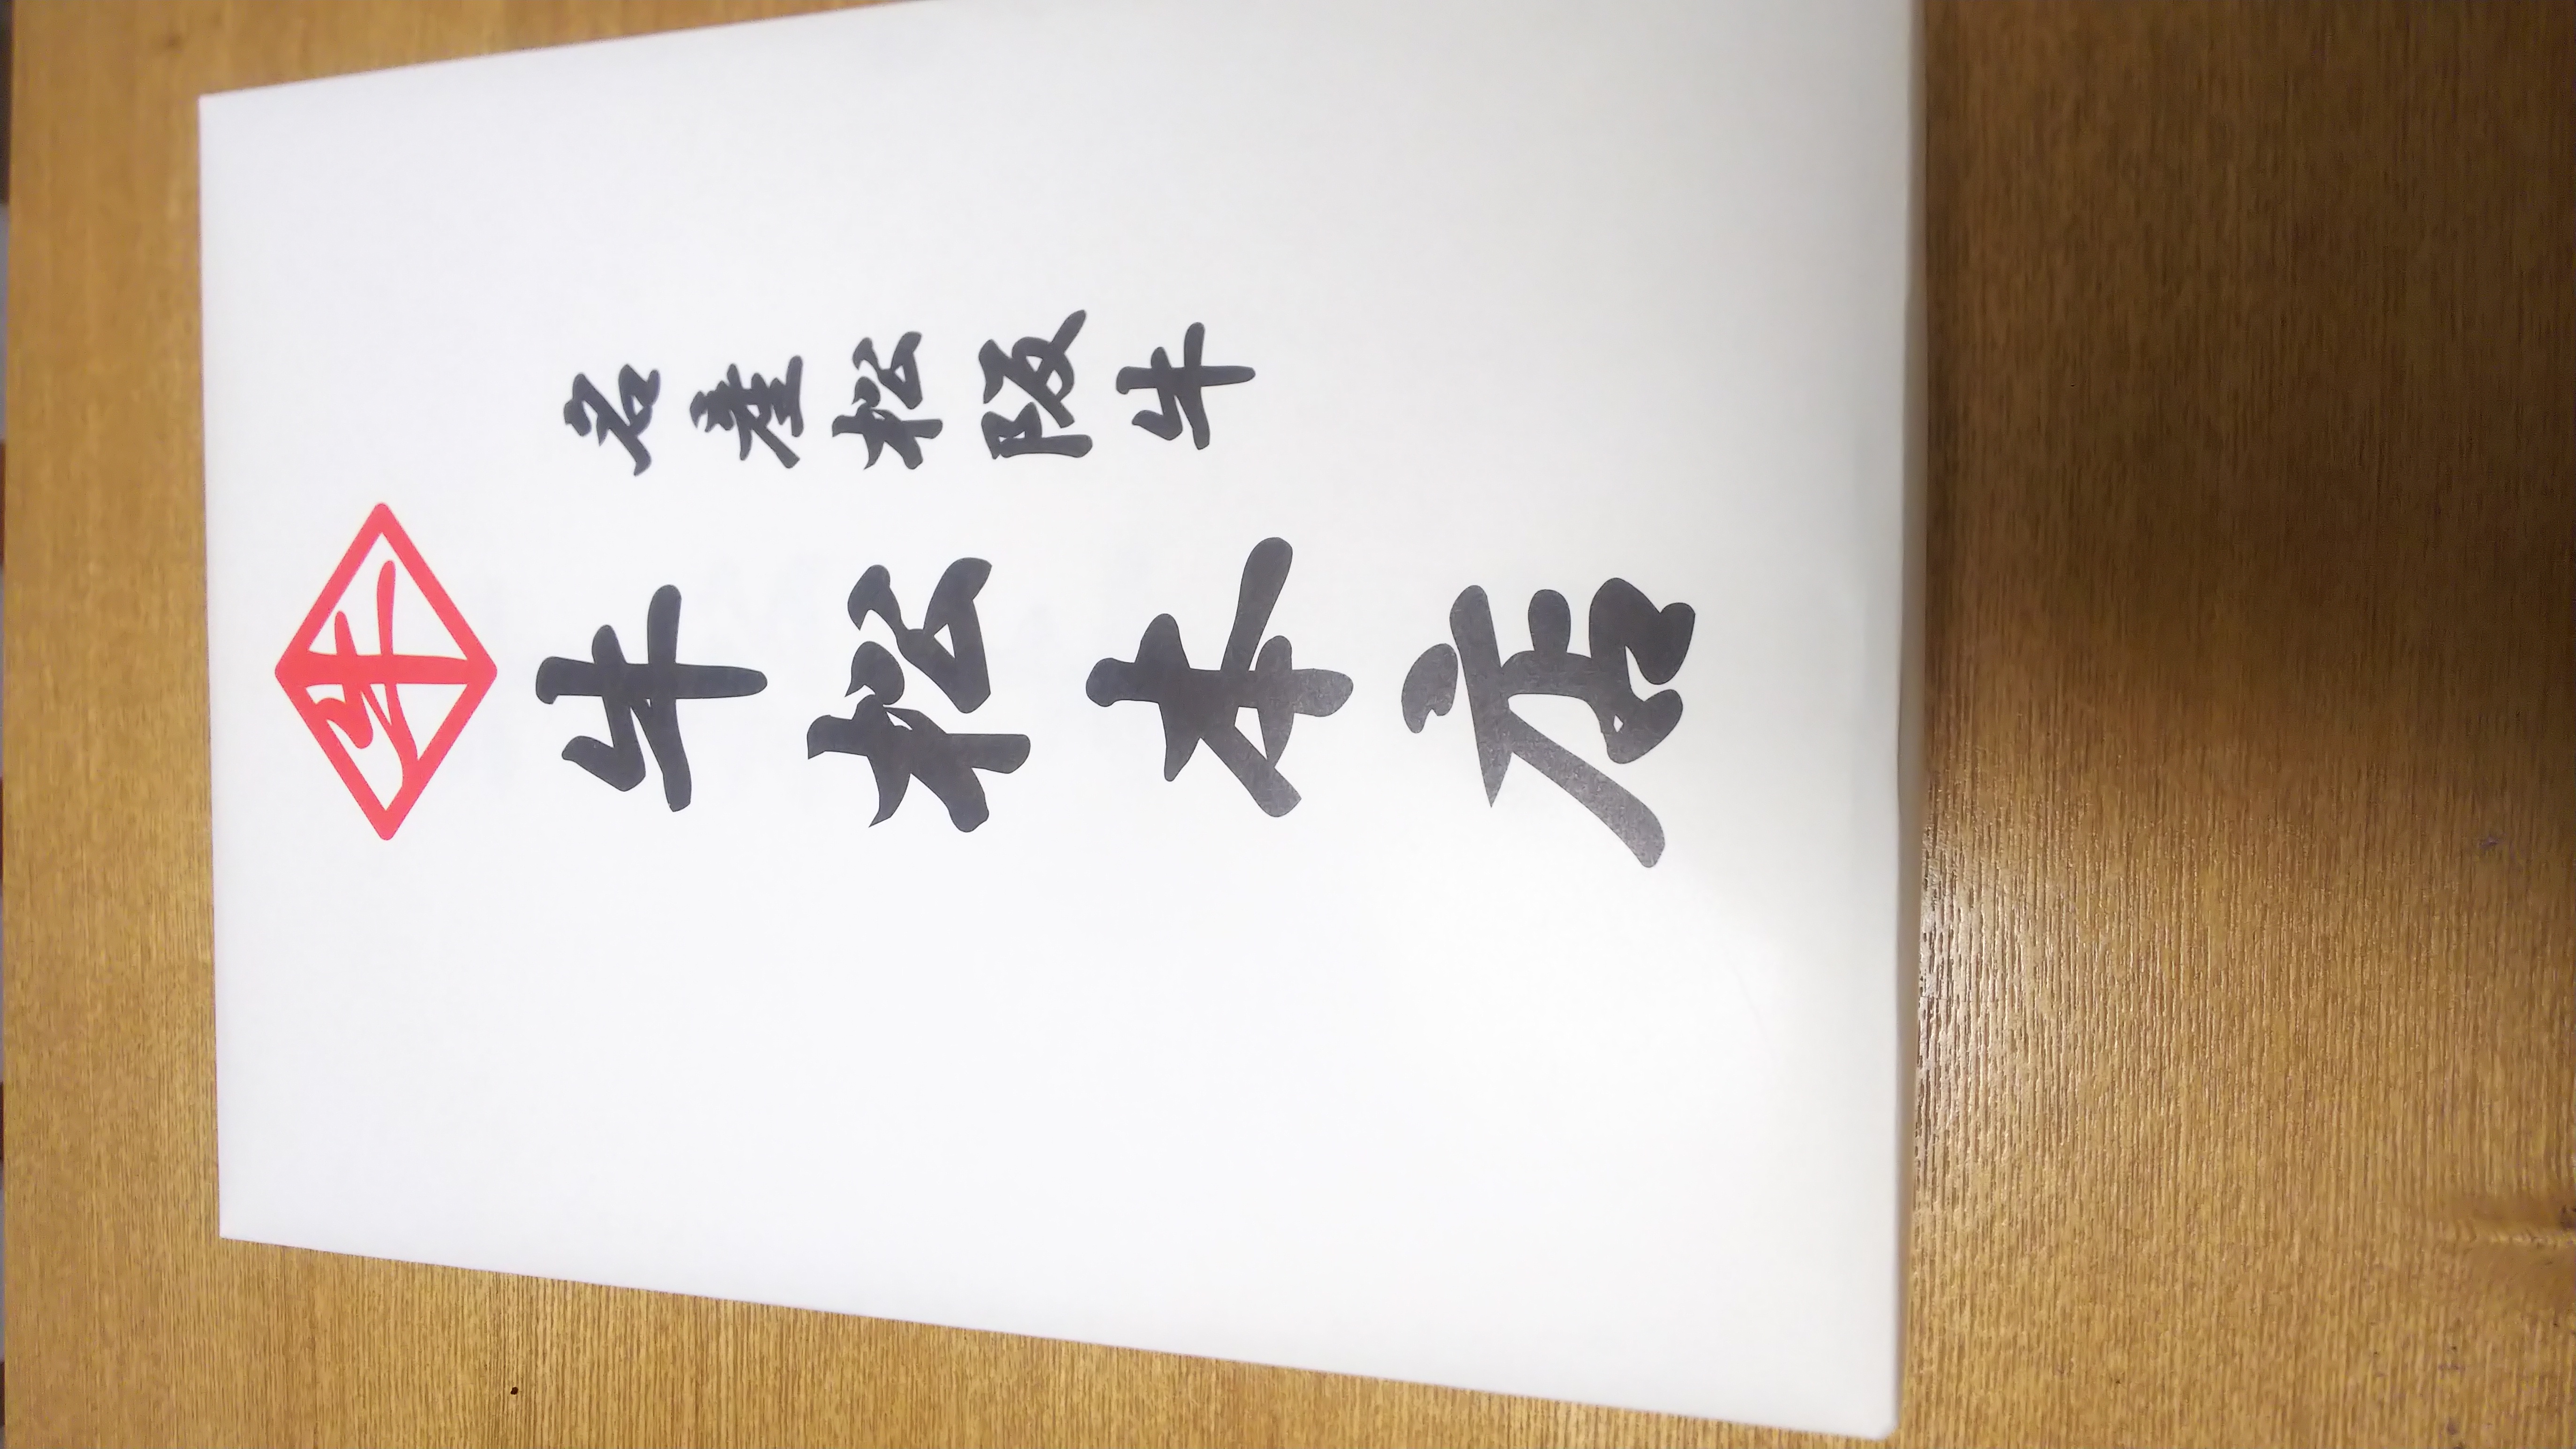 名産松阪牛
牛松本店